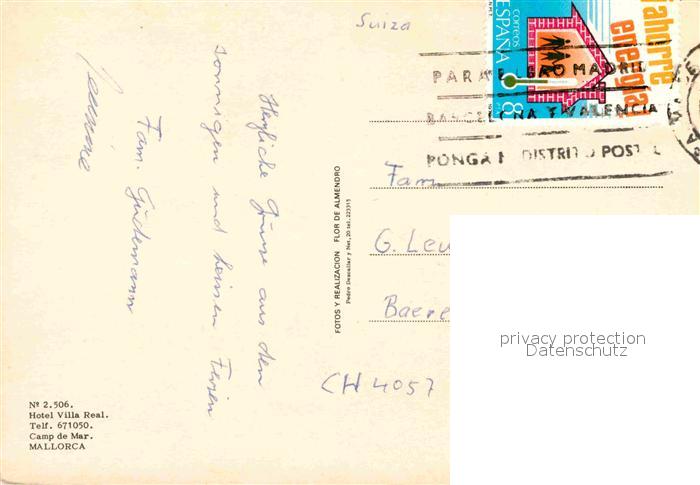 Herzliche Grüsse aus den
sonnigen und heissen Ferien
Fam. Güdemann
Nº 2.506.
Hotel Villa Real.
Telf. 671050.
Camp de Mar.
MALLORCA
FOTOS Y REALIZACION FLOR DE ALMENDRO
Pedro Dezcallar y Net, 20 tel. 223315
Suiza
correos
ESPAÑA
8
ahorre
energia
PARA MADRID
BARCELONA Y VALENCIA
PONGA DISTRITO POSTAL
Fam
G. Leu
Baere
CH 4057
privacy protection
Datenschutz